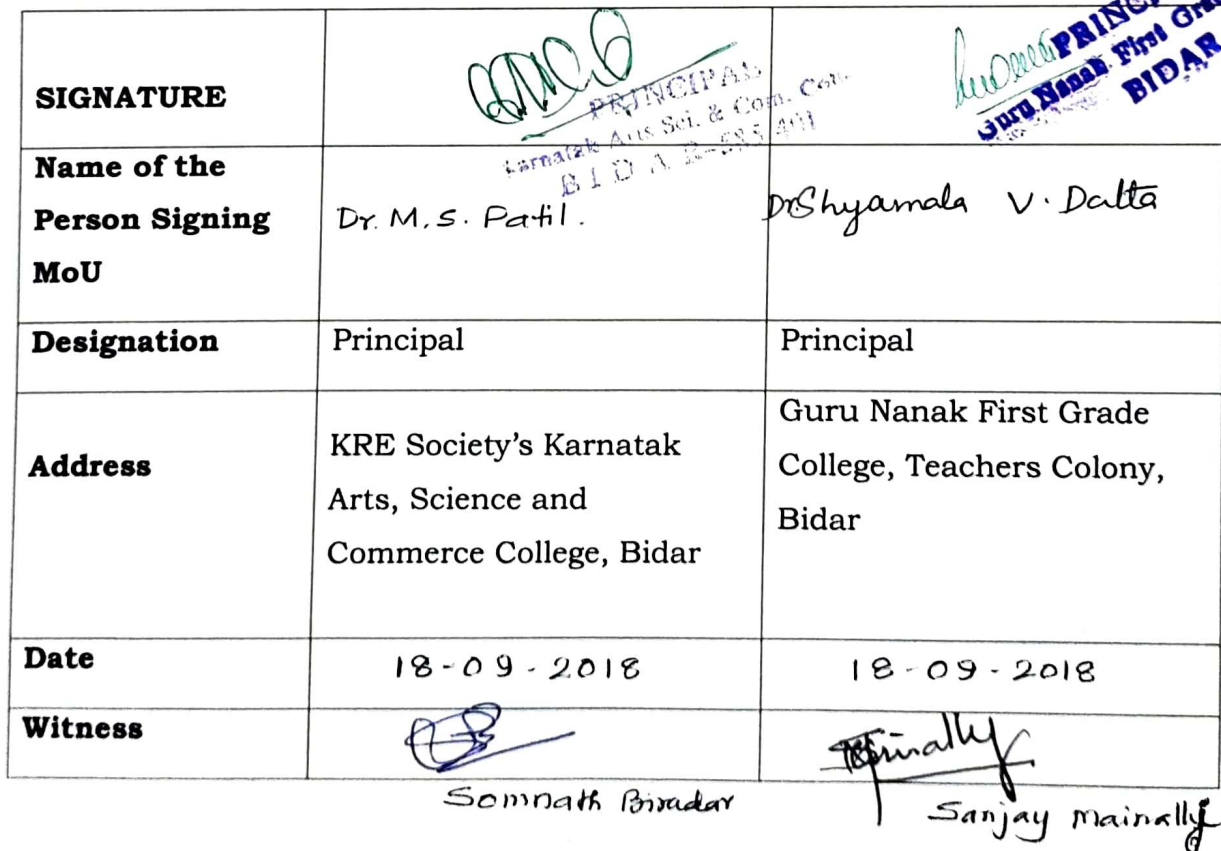 SIGNATURE
PRINCIPAL
Karnatak Arts Sci. & Com. Col.
BIDAR-585 401
PRINCI
Guru Nanak First Gra
BIDAR
Name of the
Person Signing
MoU
Dr. M.S. Patil.
Dr Shyamala V. Dalta
Designation
Principal
Principal
Address
KRE Society's Karnatak
Arts, Science and
Commerce College, Bidar
Guru Nanak First Grade
College, Teachers Colony,
Bidar
Date
18-09-2018
18-09-2018
Witness
Somnath Biradar
Sanjay Mainally